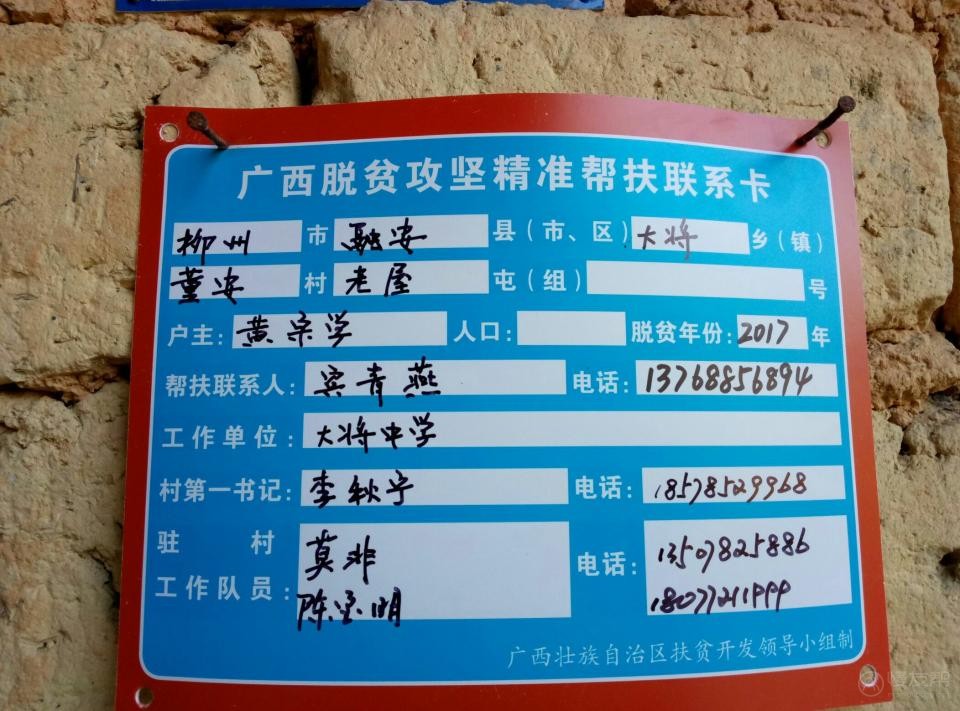 广西脱贫攻坚精准帮扶联系卡
柳州 市 融安 县（市、区） 大将 乡（镇）
董安 村 老屋 屯（组） 号
户主：黄宗学 人口： 脱贫年份：2017 年
帮扶联系人：宾青燕 电话：13768856894
工作单位：大将中学
村第一书记：李秋宁 电话：18578529968
驻村 莫非 电话：13507825886
工作队员：陈宝明 18077211999
广西壮族自治区扶贫开发领导小组制